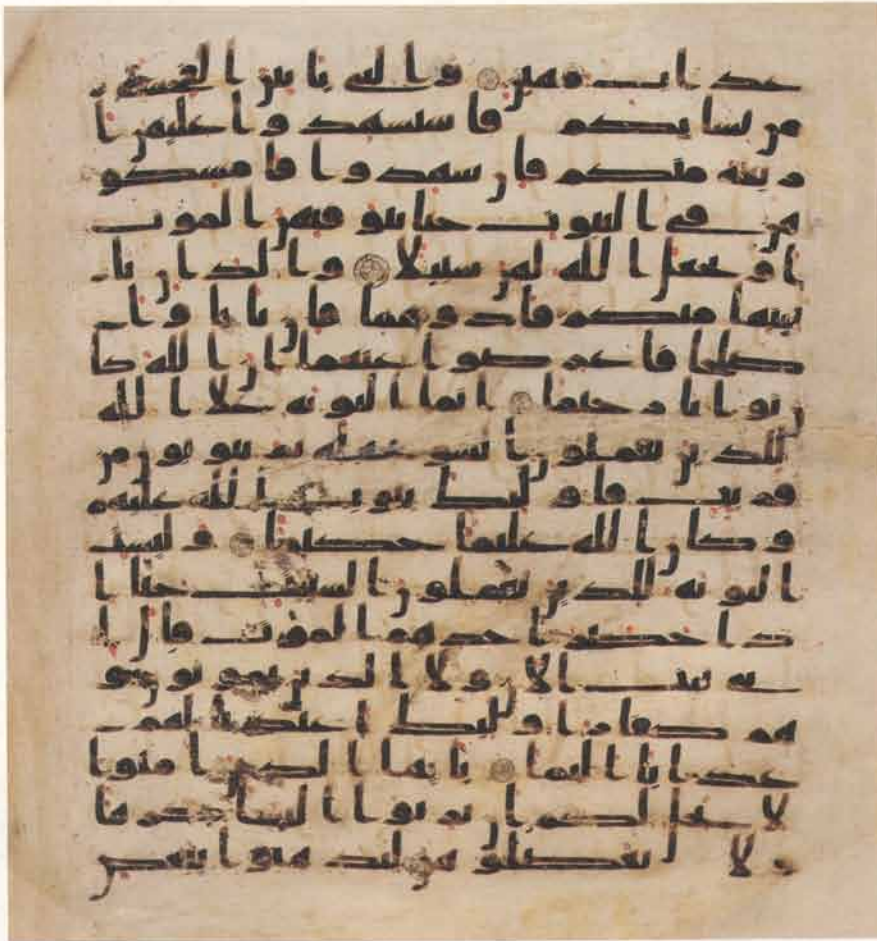 عذاب مهين والتي ياتين الفحشة
من نسايكم فاستشهدوا عليهن ا
ربعة منكم فان شهدوا فامسكو
هن في البيوت حتا يتوفيهن الموت
او يجعل الله لهن سبيلا والذان يا
تينها منكم فاذوهما فان تابا وا
صلحا فاعرضوا عنهما ان الله كا
ن توابا رحيما انما التوبة علا الله
للذين يعملون السو بجهلة ثم يتوبون من
قريب فاوليك يتوب الله عليهم
وكان الله عليما حكيما وليست
التوبة للذين يعملون السيت حتا ا
ذا حضر احدهم الموت قال ا
ني تبت الان ولا الذين يموتون و
هم كفار اوليك اعتدنا لهم
عذابا اليما يايها الذين امنوا
لا يحل لكم ان ترثوا النسا كرها
ولا تعضلوهن لتذهبوا ببعض